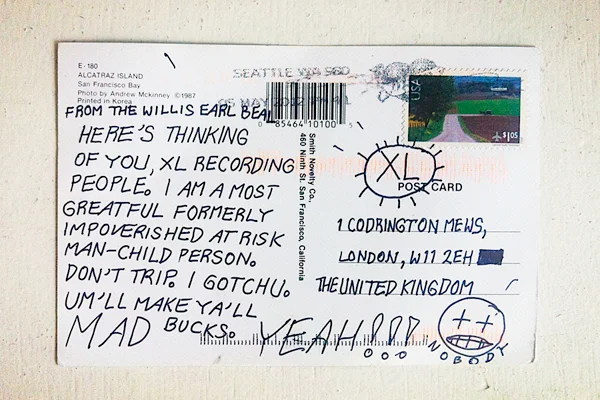 E-180
ALCATRAZ ISLAND
San Francisco Bay
Photo by Andrew Mckinney ©1987
Printed in Korea
FROM THE WILLIS EARL BEAL
HERE'S THINKING
OF YOU, XL RECORDING
PEOPLE. I AM A MOST
GREATFUL FORMERLY
IMPOVERISHED AT RISK
MAN-CHILD PERSON.
DON'T TRIP. I GOTCHU.
UM'LL MAKE YA'LL
MAD BUCKS. YEAH!!!
SEATTLE WA 980
05 MAY 2012 PM
0 85464 10100 5
Smith Novelty Co.,
460 Ninth St. San Francisco, California
USA
$1.05
XL
POST CARD
1 CODRINGTON MEWS,
LONDON, W11 2EH
THE UNITED KINGDOM
NOBODY